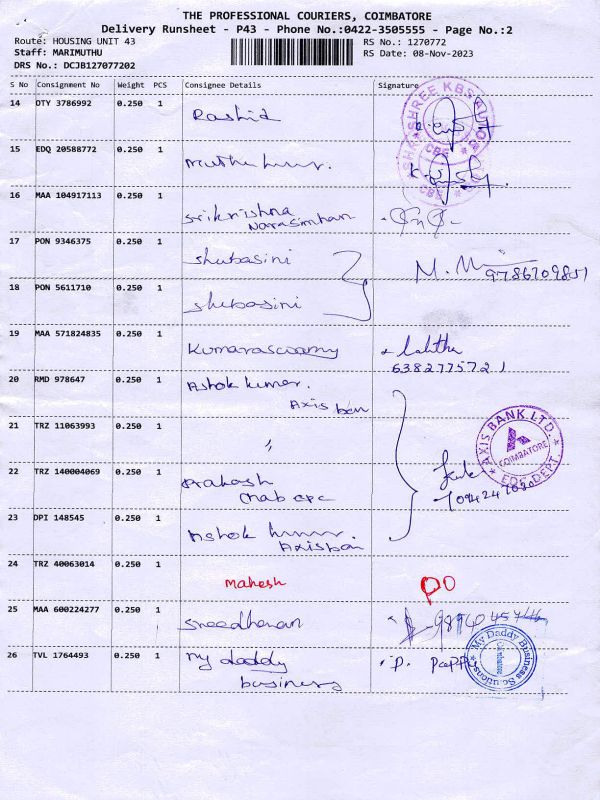 THE PROFESSIONAL COURIERS, COIMBATORE
Delivery Runsheet - P43 - Phone No.:0422-3505555 - Page No.:2
Route: HOUSING UNIT 43
RS No.: 1270772
Staff: MARIMUTHU
RS Date: 08-Nov-2023
DRS No.: DCJB127077202
S No Consignment No Weight PCS Consignee Details Signature
14 OTY 3786992 0.250 1 Rashid
15 EDQ 20588772 0.250 1
16 MAA 104917113 0.250 1 Srikrishna
Narasimhan
17 PON 9346375 0.250 1 Shubasini
9786709851
18 PON 5611710 0.250 1 Shubasini
19 MAA 571824835 0.250 1 Kumaraswamy Lalitha
6382775721
20 RMD 978647 0.250 1 Ashok kumar.
Axis ban
21 TRZ 11063993 0.250 1 "
AXIS BANK LTD.
COIMBATORE
EDC DEPT.
22 TRZ 140004069 0.250 1 Prakash
23 DPI 148545 0.250 1 Ashok kumar.
Axis ban
24 TRZ 40063014 0.250 1 Mahesh PO
25 MAA 600224277 0.250 1 Sreedharan
26 TVL 1764493 0.250 1 my daddy
business
My Daddy Business Solutions
Coimbatore